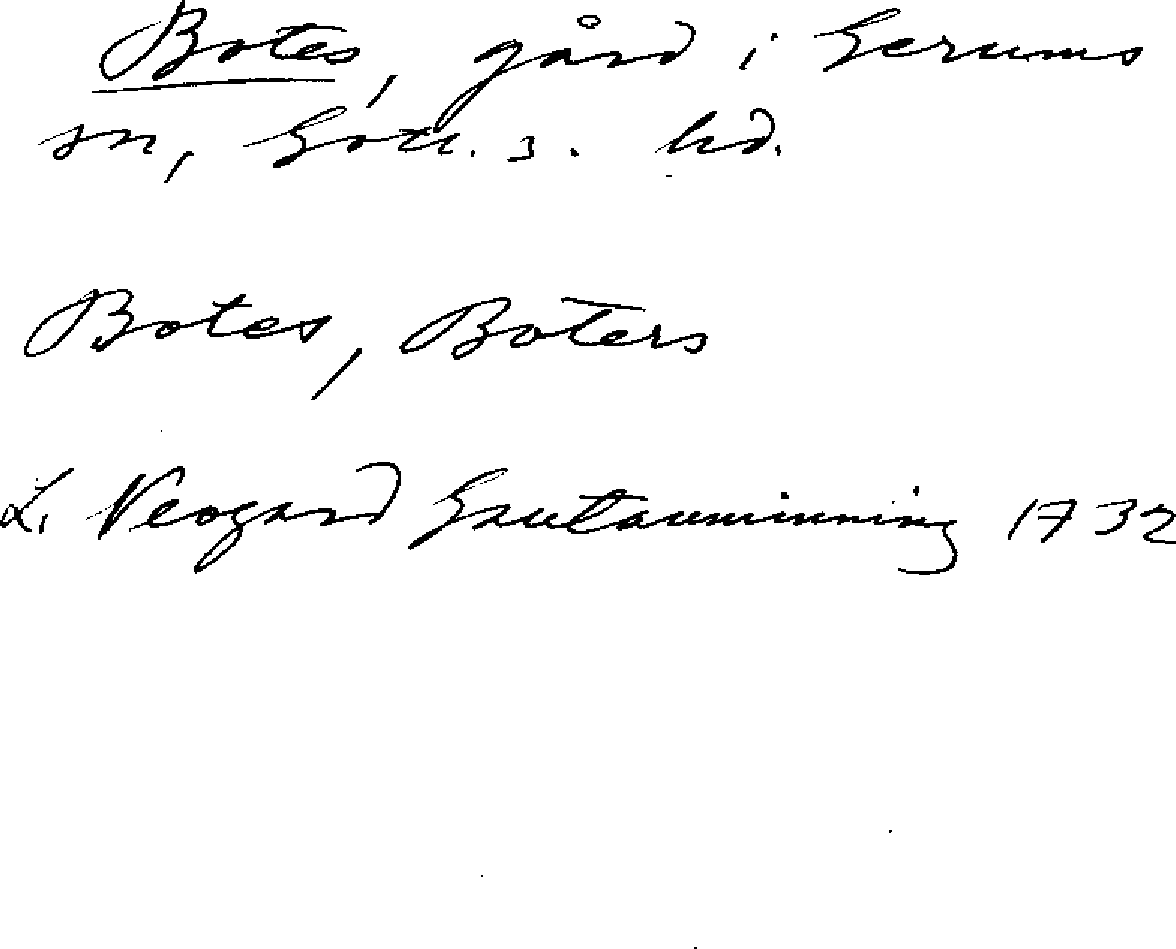 Botes, gård i Gerums
sn, Gotl. s. hd.
Botes, Boters
L. Neogard Gautauminning 1732